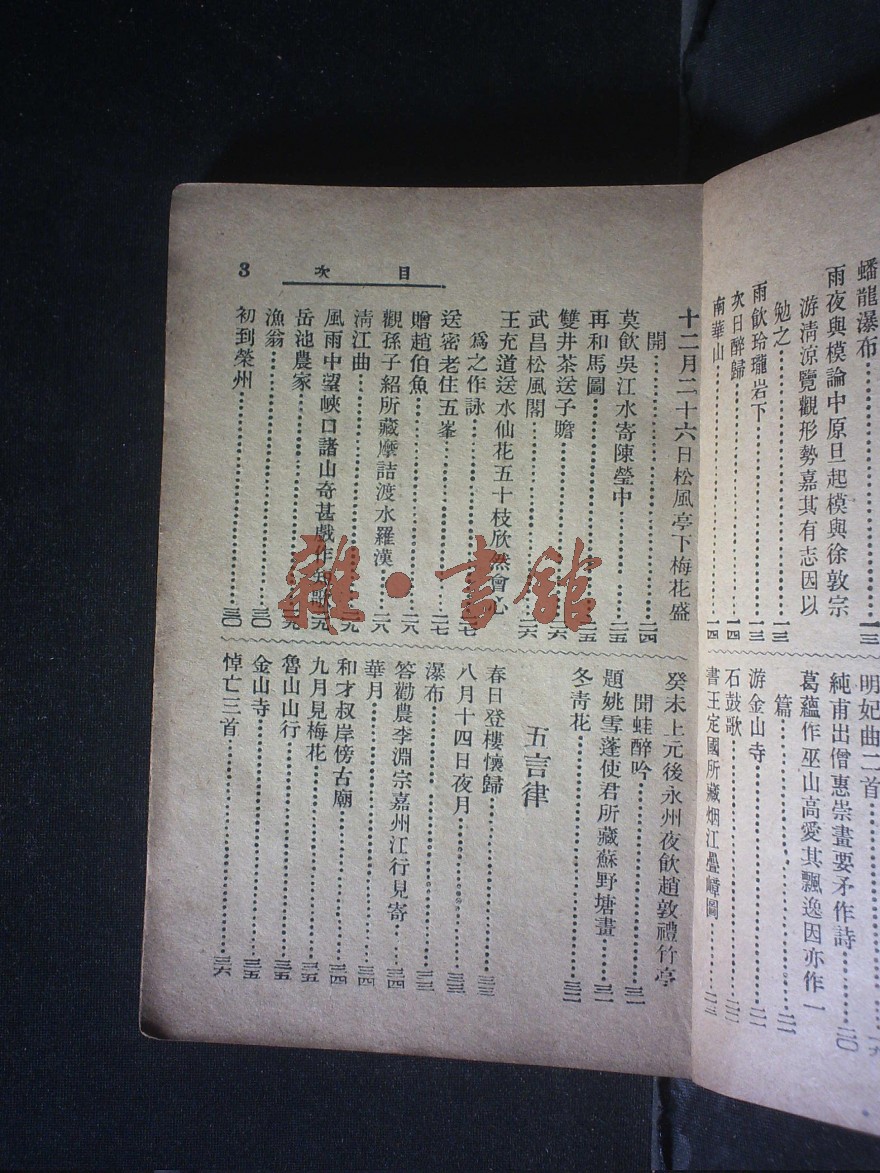 蟠龍瀑布……一三
雨夜與模論中原旦起模與徐敦宗
游清涼覽觀形勢嘉其有志因以
勉之……一三
雨飲玲瓏岩下……一三
次日醉歸……一四
南華山……一四
明妃曲二首
純甫出僧惠崇畫要予作詩……二〇
葛蘊作巫山高愛其飄逸因亦作一
篇……二一
游金山寺……二一
石鼓歌……二二
書王定國所藏烟江疊嶂圖……二三
目次
3
十二月二十六日松風亭下梅花盛
開……二四
莫飲吳江水寄陳瑩中……二五
再和馬圖……二五
雙井茶送子瞻……二六
武昌松風閣……二六
王充道送水仙花五十枝欣然會心
爲之作詠……二七
送密老住五峯……二七
贈趙伯魚……二八
觀孫子紹所藏摩詰渡水羅漢……二八
清江曲……二九
風雨中望峽口諸山奇甚戲作短歌……二九
岳池農家……二九
漁翁……三〇
初到榮州……三〇
癸未上元後永州夜飲趙敦禮竹亭
聞蛙醉吟……三一
題姚雪蓬使君所藏蘇野塘畫……三一
冬青花……三二
五言律
春日登樓懷歸……三三
八月十四日夜月……三三
瀑布……三三
答勸農李淵宗嘉州江行見寄……三四
華月……三四
和才叔岸傍古廟……三四
九月見梅花……三五
魯山山行……三五
金山寺……三五
悼亡三首……三六
雜·書館